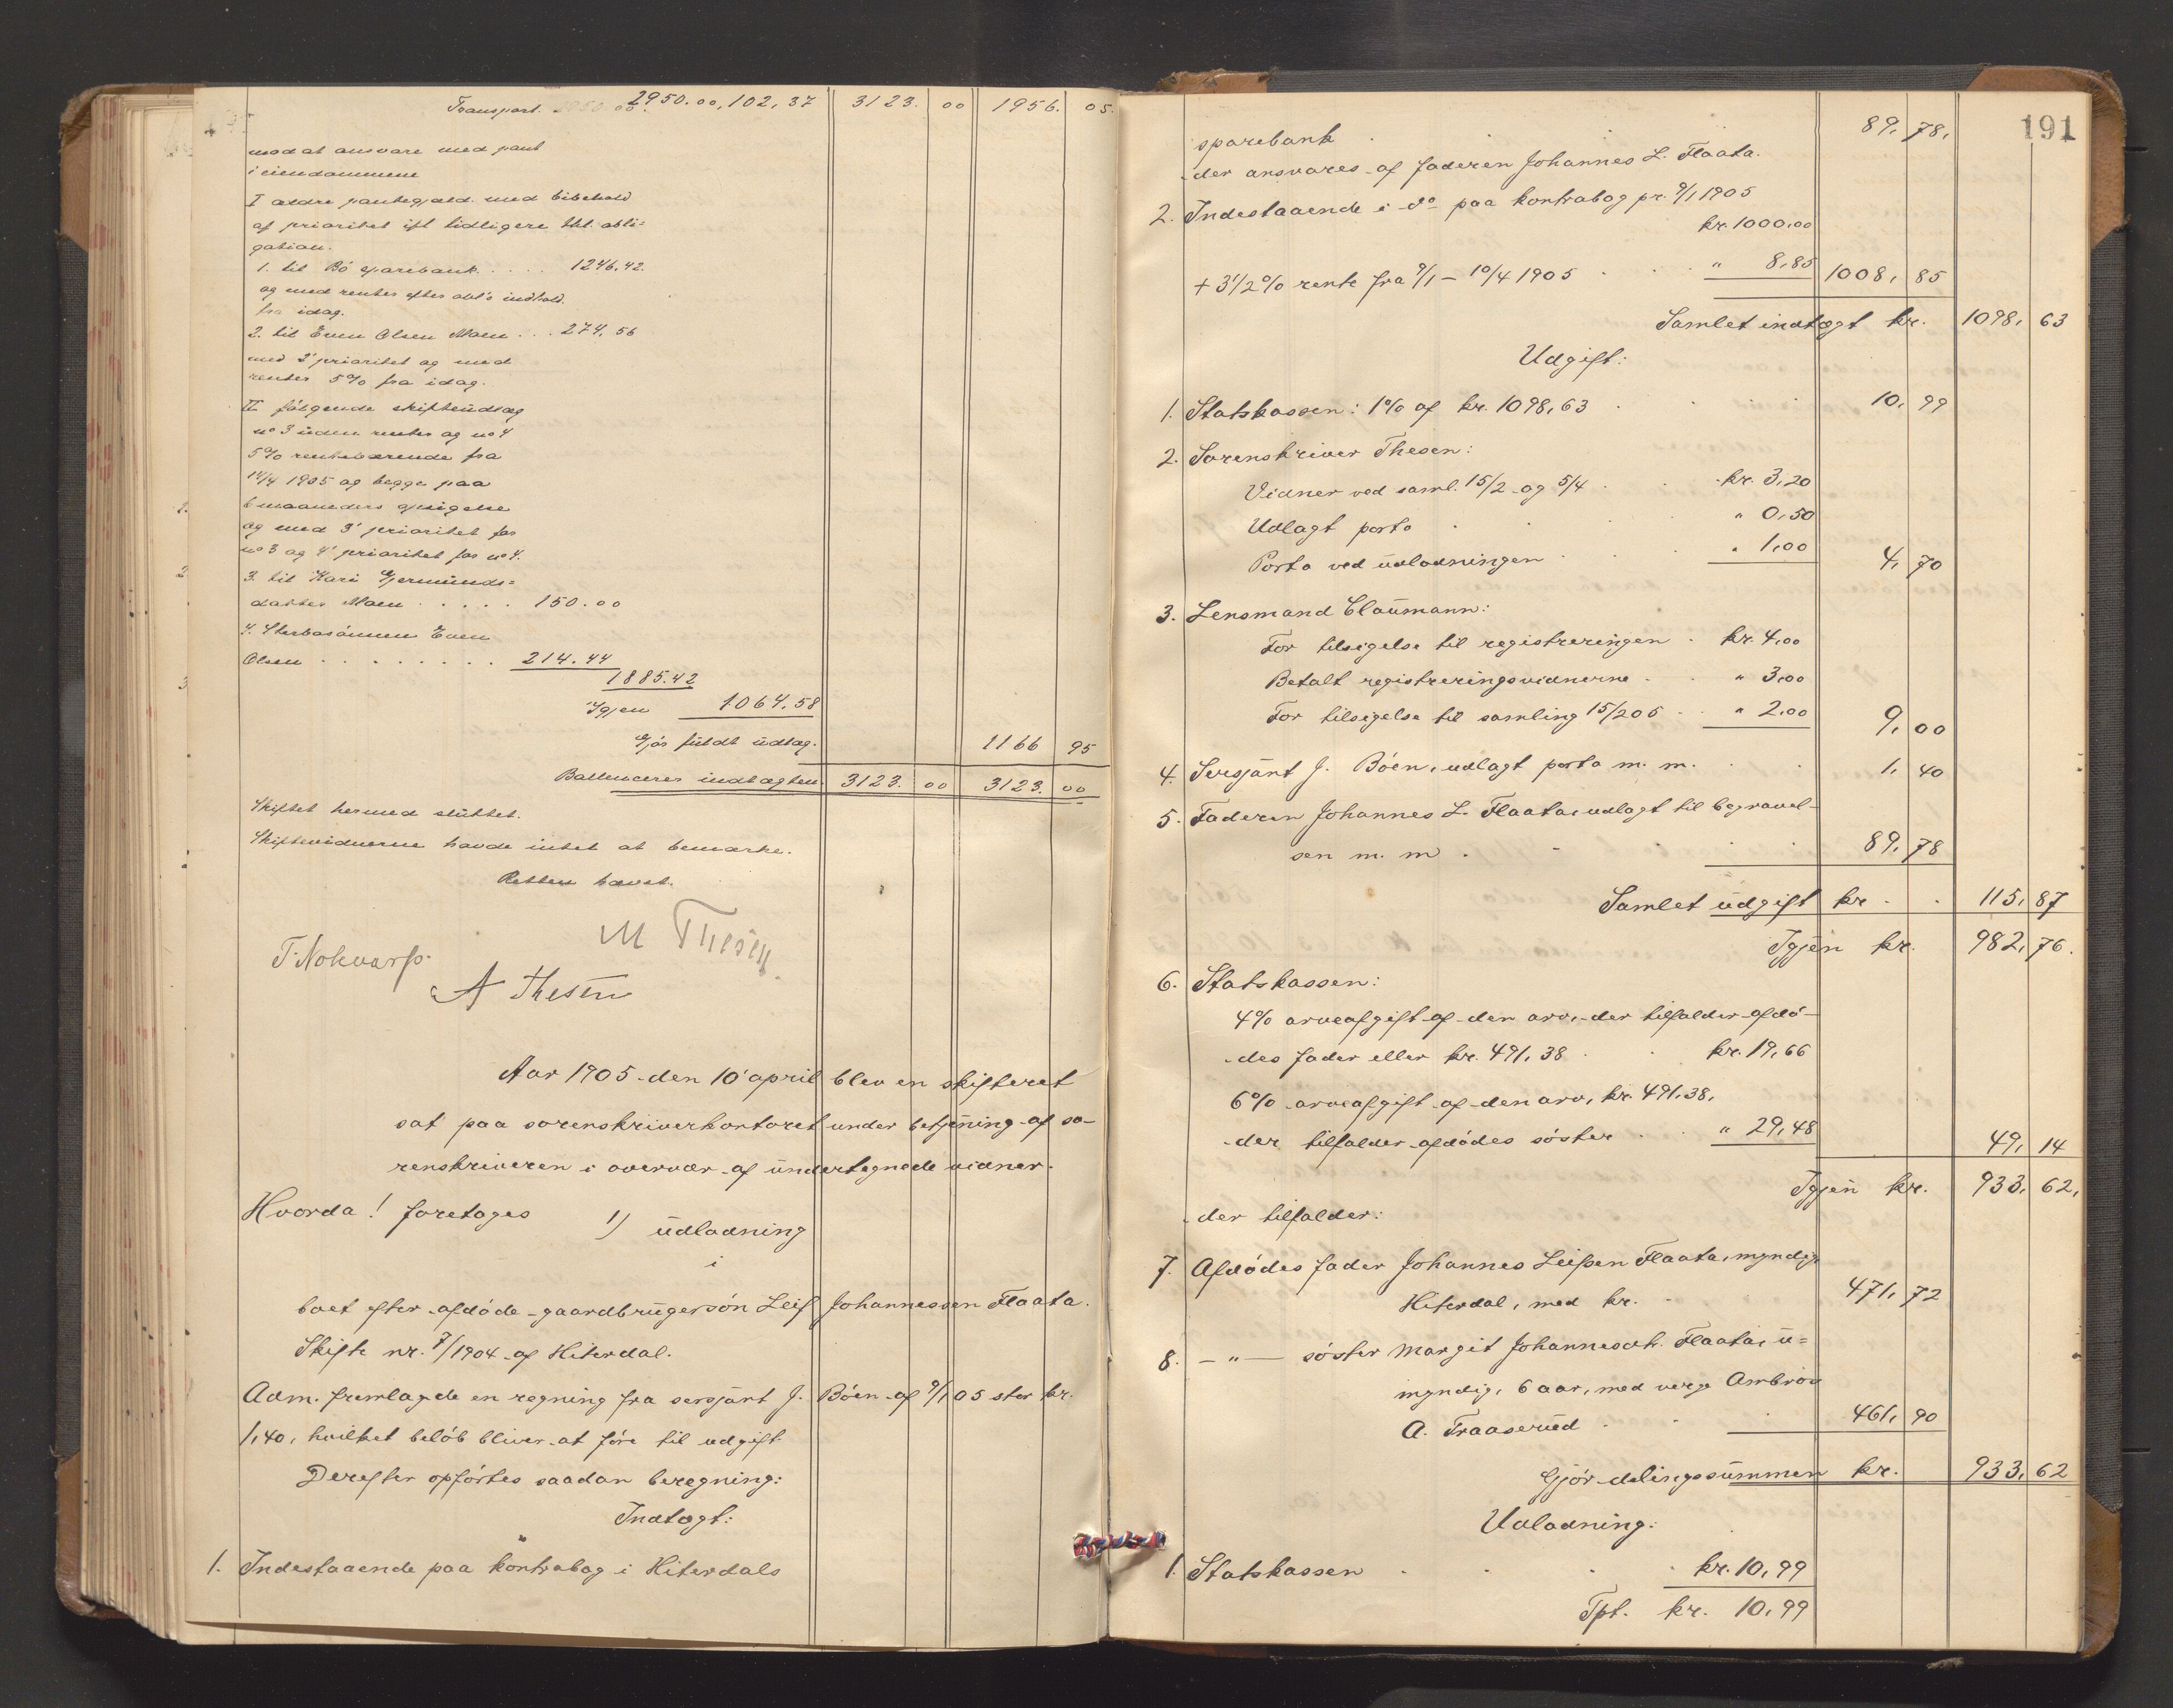 Transport. 2950.00, 102,37 3123. 00 1956. 05.
mod at ansvare med pant
i eiendommene
I ældre pantegjæld med bibehold
af prioritet ifl tidligere thl. obli=
gation.
1. til Bö sparebank . . . . 1246.42.
og med renter efter obl's indhold.
fra idag.
2. til Even Olsen Moen . . . 274.56
med 2' prioritet og med
renter 5% fra idag.
II følgende skifteudlæg
no 3 uden renter og no 4
5% rentebærende fra
14/4 1905 og begge paa
6 maaneders opsigelse
og med 3' prioritet for
no 3 og 4' prioritet for no 4.
3. til Kari Gjermunds=
datter Moen . . . . . 150.00
4. Sterbosönnen Even
Olsen . . . . . . . . 214.44
1885.42
Igjen 1064.58
Gjör fuldt udlæg. 1166 95
Ballancerer indtægten. 3123. 00 3123. 00
Skiftet hermed sluttet.
Skiftevidnerne havde intet at bemærke.
Retten hævet.
M Thesen
A Thesen
Aar 1905 den 10' april blev en skifteret
sat paa sorenskriverkontoret under betjening af so-
renskriveren i overvær af undertegnede vidner.
Hvorda! foretoges 1) udlodning
i
boet efter afdöde gaardbrugersön Leif Johannessen Flaata.
Skifte nr. 7/1904 af Hiterdal.
Adm. fremlagde en regning fra sersjant J. Böen af 9/1 05 stor kr.
1,40, hvilket belöb bliver at före til udgift.
Derefter opförtes saadan beregning:
Indtægt:
1. Indestaaende paa kontrabog i Hiterdals
191
sparebank . . . 89, 78,
der ansvares af faderen Johannes L. Flaata.
2. Indestaaende i do paa kontrabog pr. 9/1 1905
kr. 1000,00
+ 3 1/2% rente fra 9/1 - 10/4 1905 . . . " 8,85 1008, 85
Samlet indtægt kr. 1098, 63
Udgift:
1. Statskassen: 1% af kr. 1098,63 . . . . 10, 99
2. Sorenskriver Thesen:
Vidner ved saml. 15/2 og 5/4 . . kr. 3,20
Udlagt porto . . . " 0,50
Porto ved udlodningen . . . " 1,00 4, 70
3. Lensmand Claumann:
For tilsigelse til registreringen . kr. 4,00
Betalt registreringsvidnerne . . " 3,00
For tilsigelse til samling 15/2 05 . . " 2,00 9, 00
4. Sersjant J. Böen, udlagt porto m. m. . . 1, 40
5. Faderen Johannes L. Flaata, udlagt til begravel-
sen m. m . . . . . 89, 78
Samlet udgift kr . . 115, 87
Igjen kr. 982, 76.
6. Statskassen:
4% arveafgift af den arv, der tilfalder afdö-
des fader eller kr. 491,38 . . kr. 19,66
6% arveafgift af den arv, kr. 491,38,
der tilfalder afdödes söster . . " 29,48 49, 14
Igjen kr. 933, 62,
der tilfalder:
7. Afdödes fader Johannes Leifsen Flaata, myndig
Hiterdal, med kr. . 471, 72
8. — " — söster Margit Johannesdt. Flaata, u=
myndig, 6 aar, med verge Ambros
A. Traaserud . . . 461, 90
Gjör delingssummen kr. 933, 62
Udlodning:
1. Statskassen . . . . kr. 10,99
Tpt. kr. 10,99